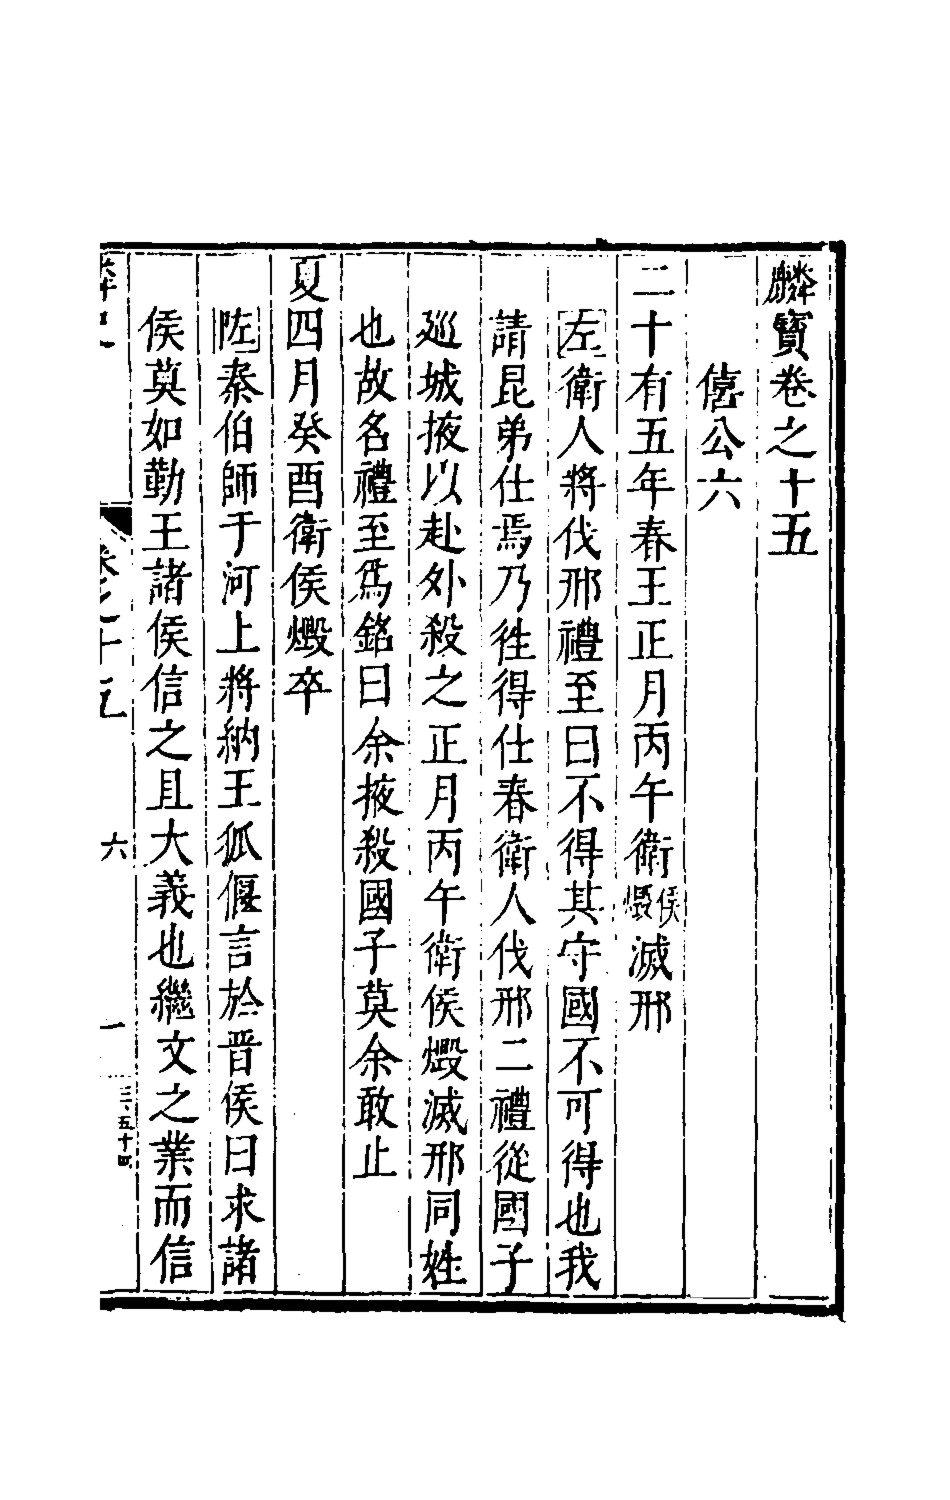 麟寶卷之十五
僖公六
二十有五年春王正月丙午衛侯燬滅邢
左衛人將伐邢禮至曰不得其守國不可得也我
請昆弟仕焉乃徃得仕春衛人伐邢二禮從國子
廵城掖以赴外殺之正月丙午衛侯燬滅邢同姓
也故名禮至爲銘曰余掖殺國子莫余敢止
夏四月癸酉衛侯燬卒
左秦伯師于河上將納王狐偃言於晋侯曰求諸
侯莫如勤王諸侯信之且大義也繼文之業而信
卷之十五
六
一
三五十四